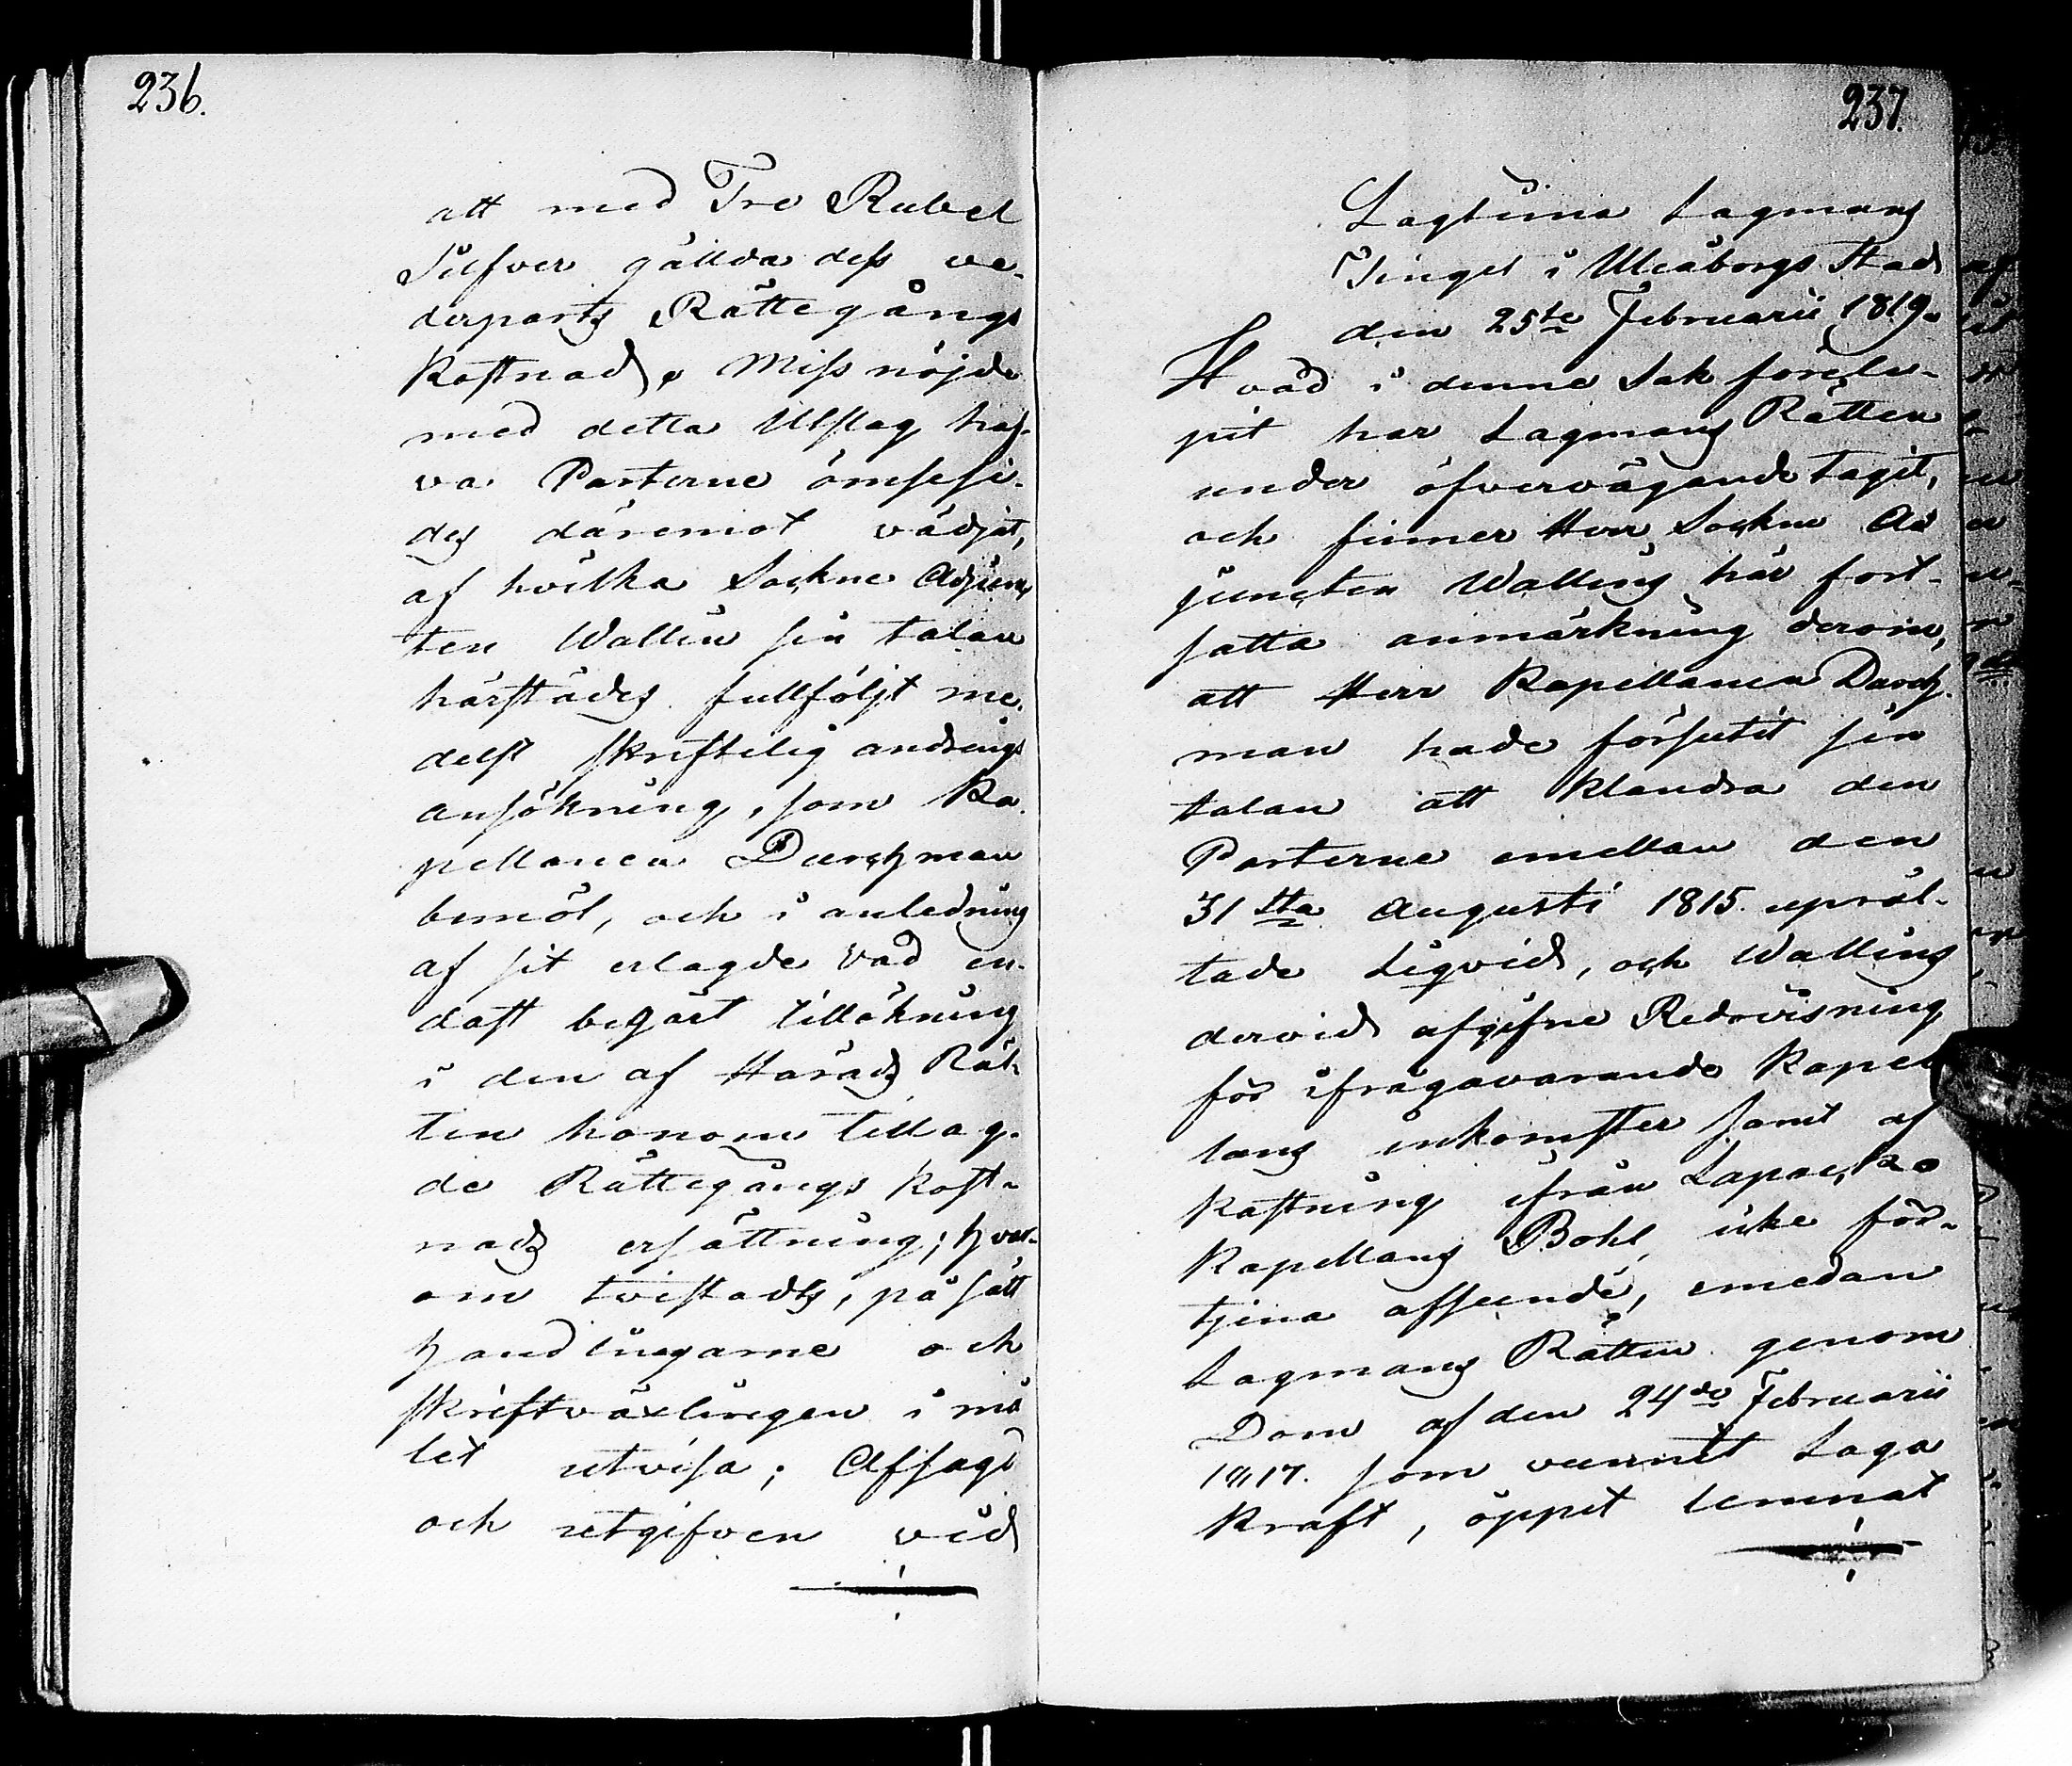 236.
att med Tre Rubel
Silfver gällda dess ve-
derparts Rättegångs
kostnad. Missnöjde
med detta Utslag haf-
va Parterne ömsesi-
des däremot vädjat,
af hvilka Sockne Adjunc-
ten Wallin sin talan
härstädes fullföljt me-
delst skriftelig ändrings
ansökning, som Ka-
pellanen Durchman
bemöt, och i anledning
af sit erlagde vad en-
dast begärt tillökning
i den af Härads Rät-
ten honom tillag-
de Rättegångs kost-
nads ersättning; hvar-
om tvistades, på sätt
handlingarne och
skriftväxlingen i må
let utvisa; Afsagt
och utgifven vid
237.
Lagtima Lagmans
Tinget i Uleåborgs Stad
den 25te Februarii 1819.
Hvad i denne Sak förelu-
pit har Lagmans Rätten
under öfvervägande tagit,
och finner Herr Sockne Ad
juncten Wallins här fort-
satta anmärkning derom,
att Herr Kapellanen Durch-
man hade försutit sin
talan att klandra den
Parterne emellan den
31sta Augusti 1815 uprät-
tade Liqvid, och Wallins
dervid afgifne Redovisning
för ifrågavarande Kapel
lans inkomster samt af
kastning ifrån Lapa
Kapellans Bohl, icke för-
tjena afseende, emedan
Lagmans Rätten genom
Dom af den 24de Februarii
1817. som vunnit Laga
kraft, öppet lemnat